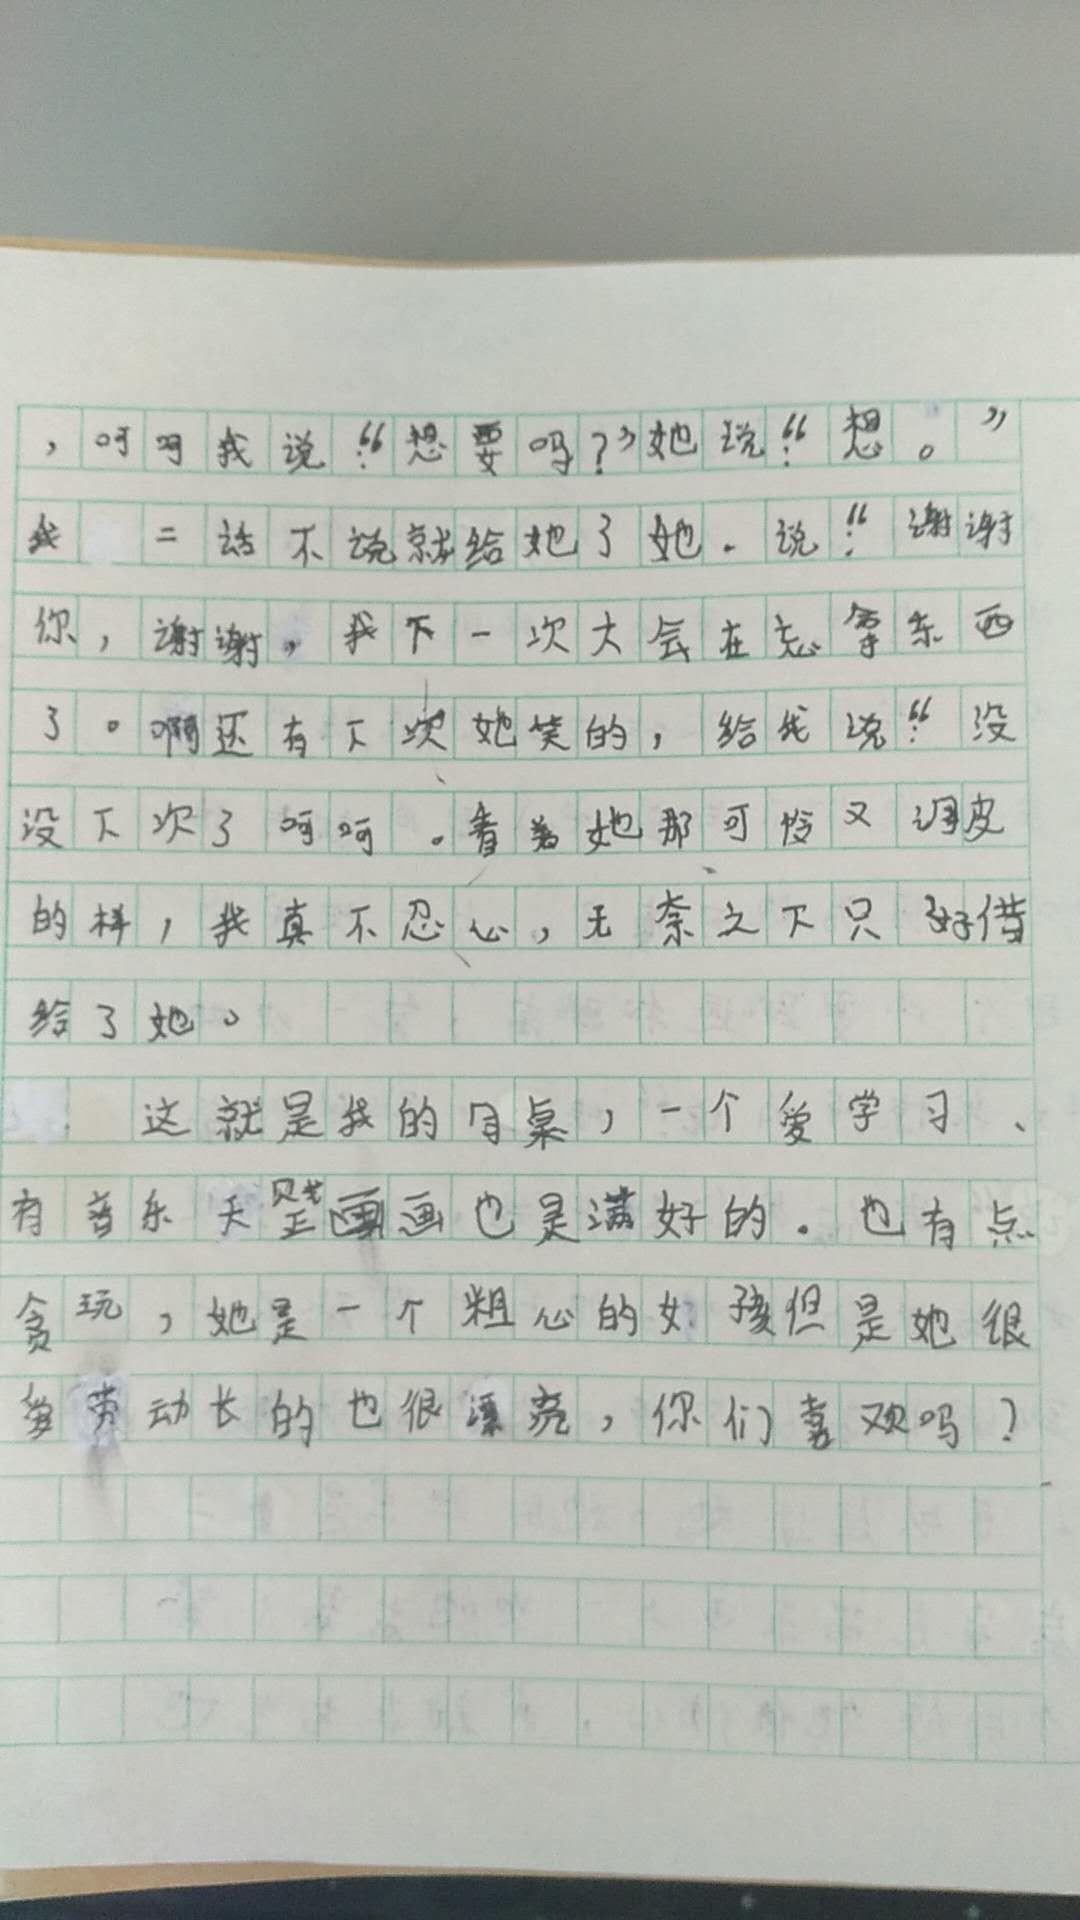 ，呵呵我说：“想要吗？”她说：“想。”
我二话不说就给她了她．说：“谢谢
你，谢谢，我下一次大会在忘拿东西
了。啊还有下次她笑的，给我说：“没
没下次了呵呵。看着她那可怜又调皮
的样，我真不忍心，无奈之下只好借
给了她。
这就是我的同桌，一个爱学习、
有音乐天画画也是满好的．也有点
贪玩，她是一个粗心的女孩但是她很
爱劳动长的也很漂亮，你们喜欢吗？